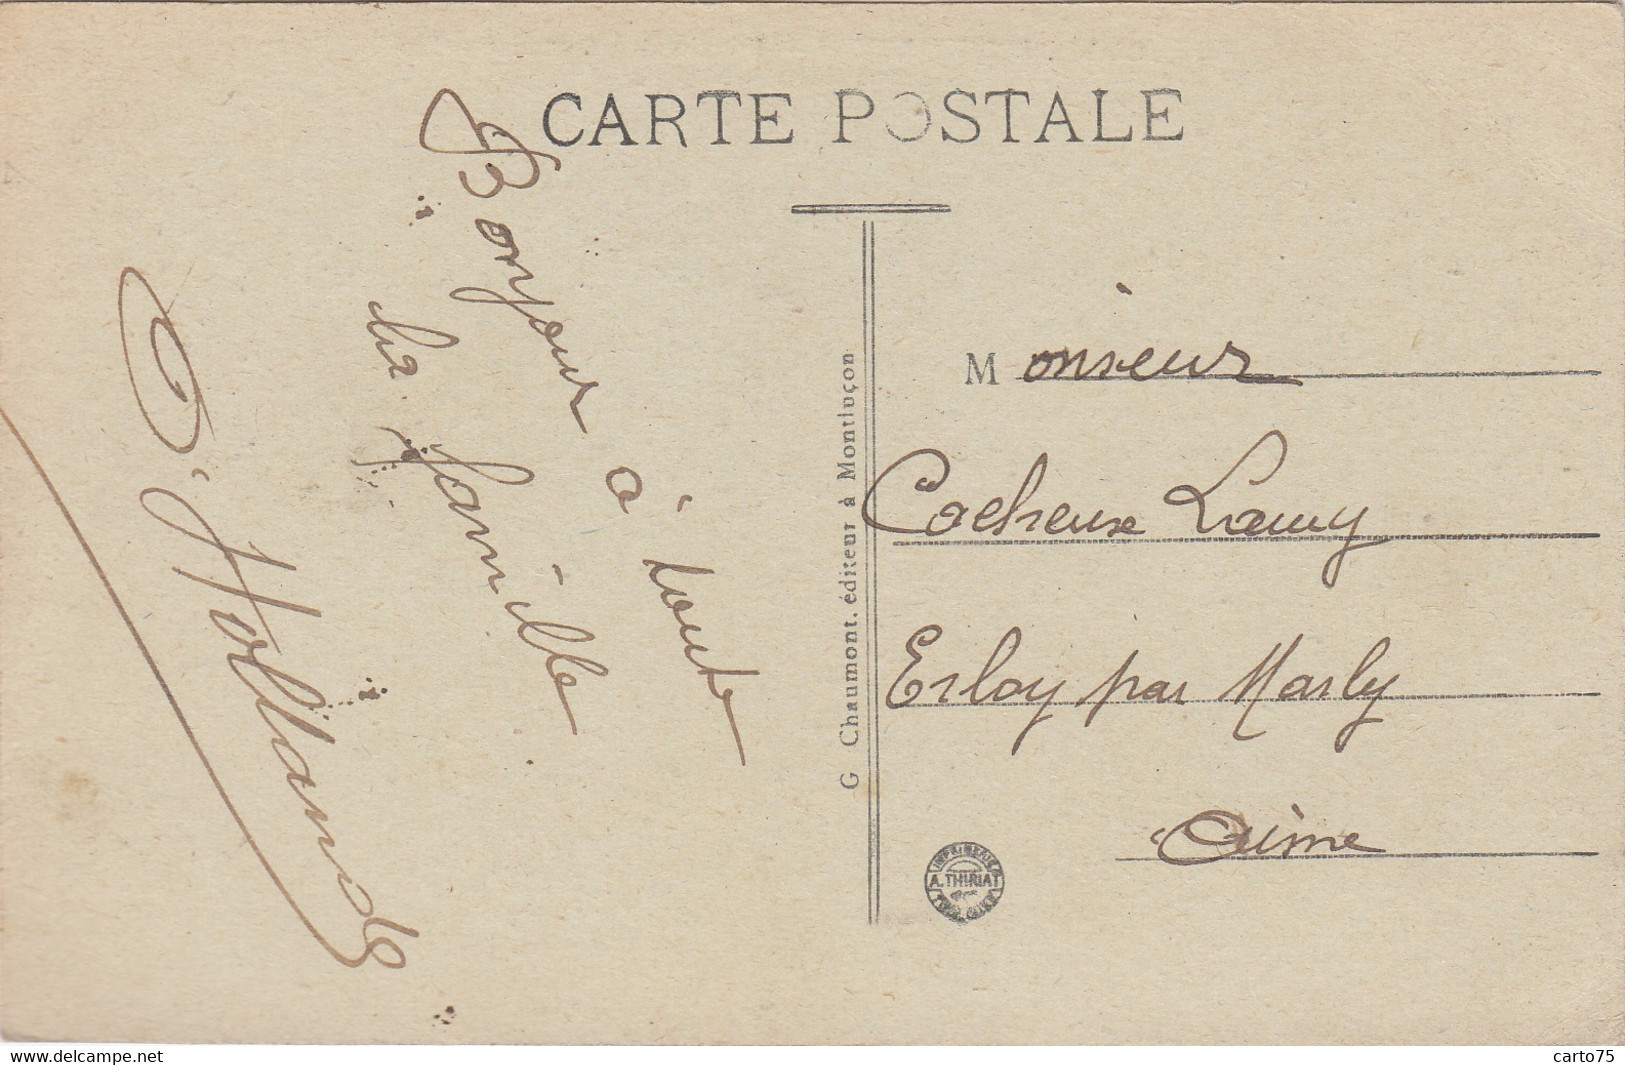 CARTE POSTALE
Bonjour à toute
la famille
D. Hollande
G Chaumont, éditeur à Montluçon
Monsieur
Cocheux Lamy
Erloy par Marly
Aisne
IMPRIMERIE
A. THIRIAT
www.delcampe.net
carto75